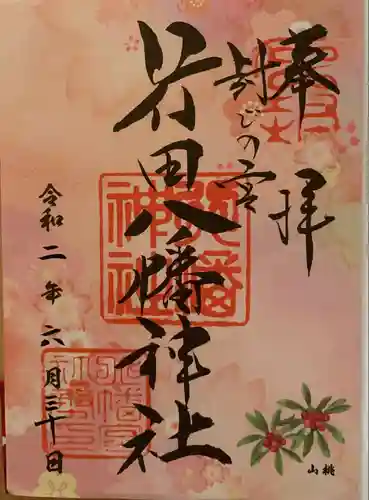 奉拝
封じの宮
行田八幡神社
令和二年六月三十日
山桃